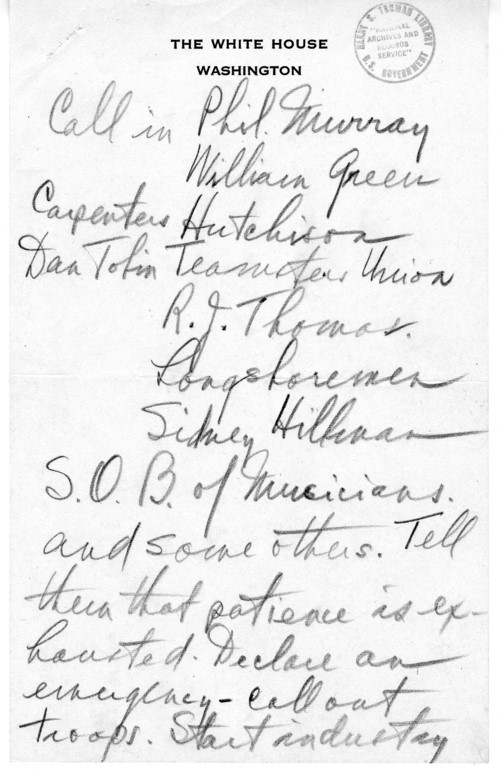 HARRY S. TRUMAN LIBRARY
"NATIONAL
ARCHIVES AND
RECORDS
SERVICE"
U.S. GOVERNMENT
THE WHITE HOUSE
WASHINGTON
Call in Phil. Murray
William Green
Carpenters Hutchison
Dan Tobin Teamsters Union
R. J. Thomas.
Longshoremen
Sidney Hillman
S. O. B. of Musicians.
and some others. Tell
them that patience is ex-
hausted. Declare an
emergency - call out
troops. Start industry